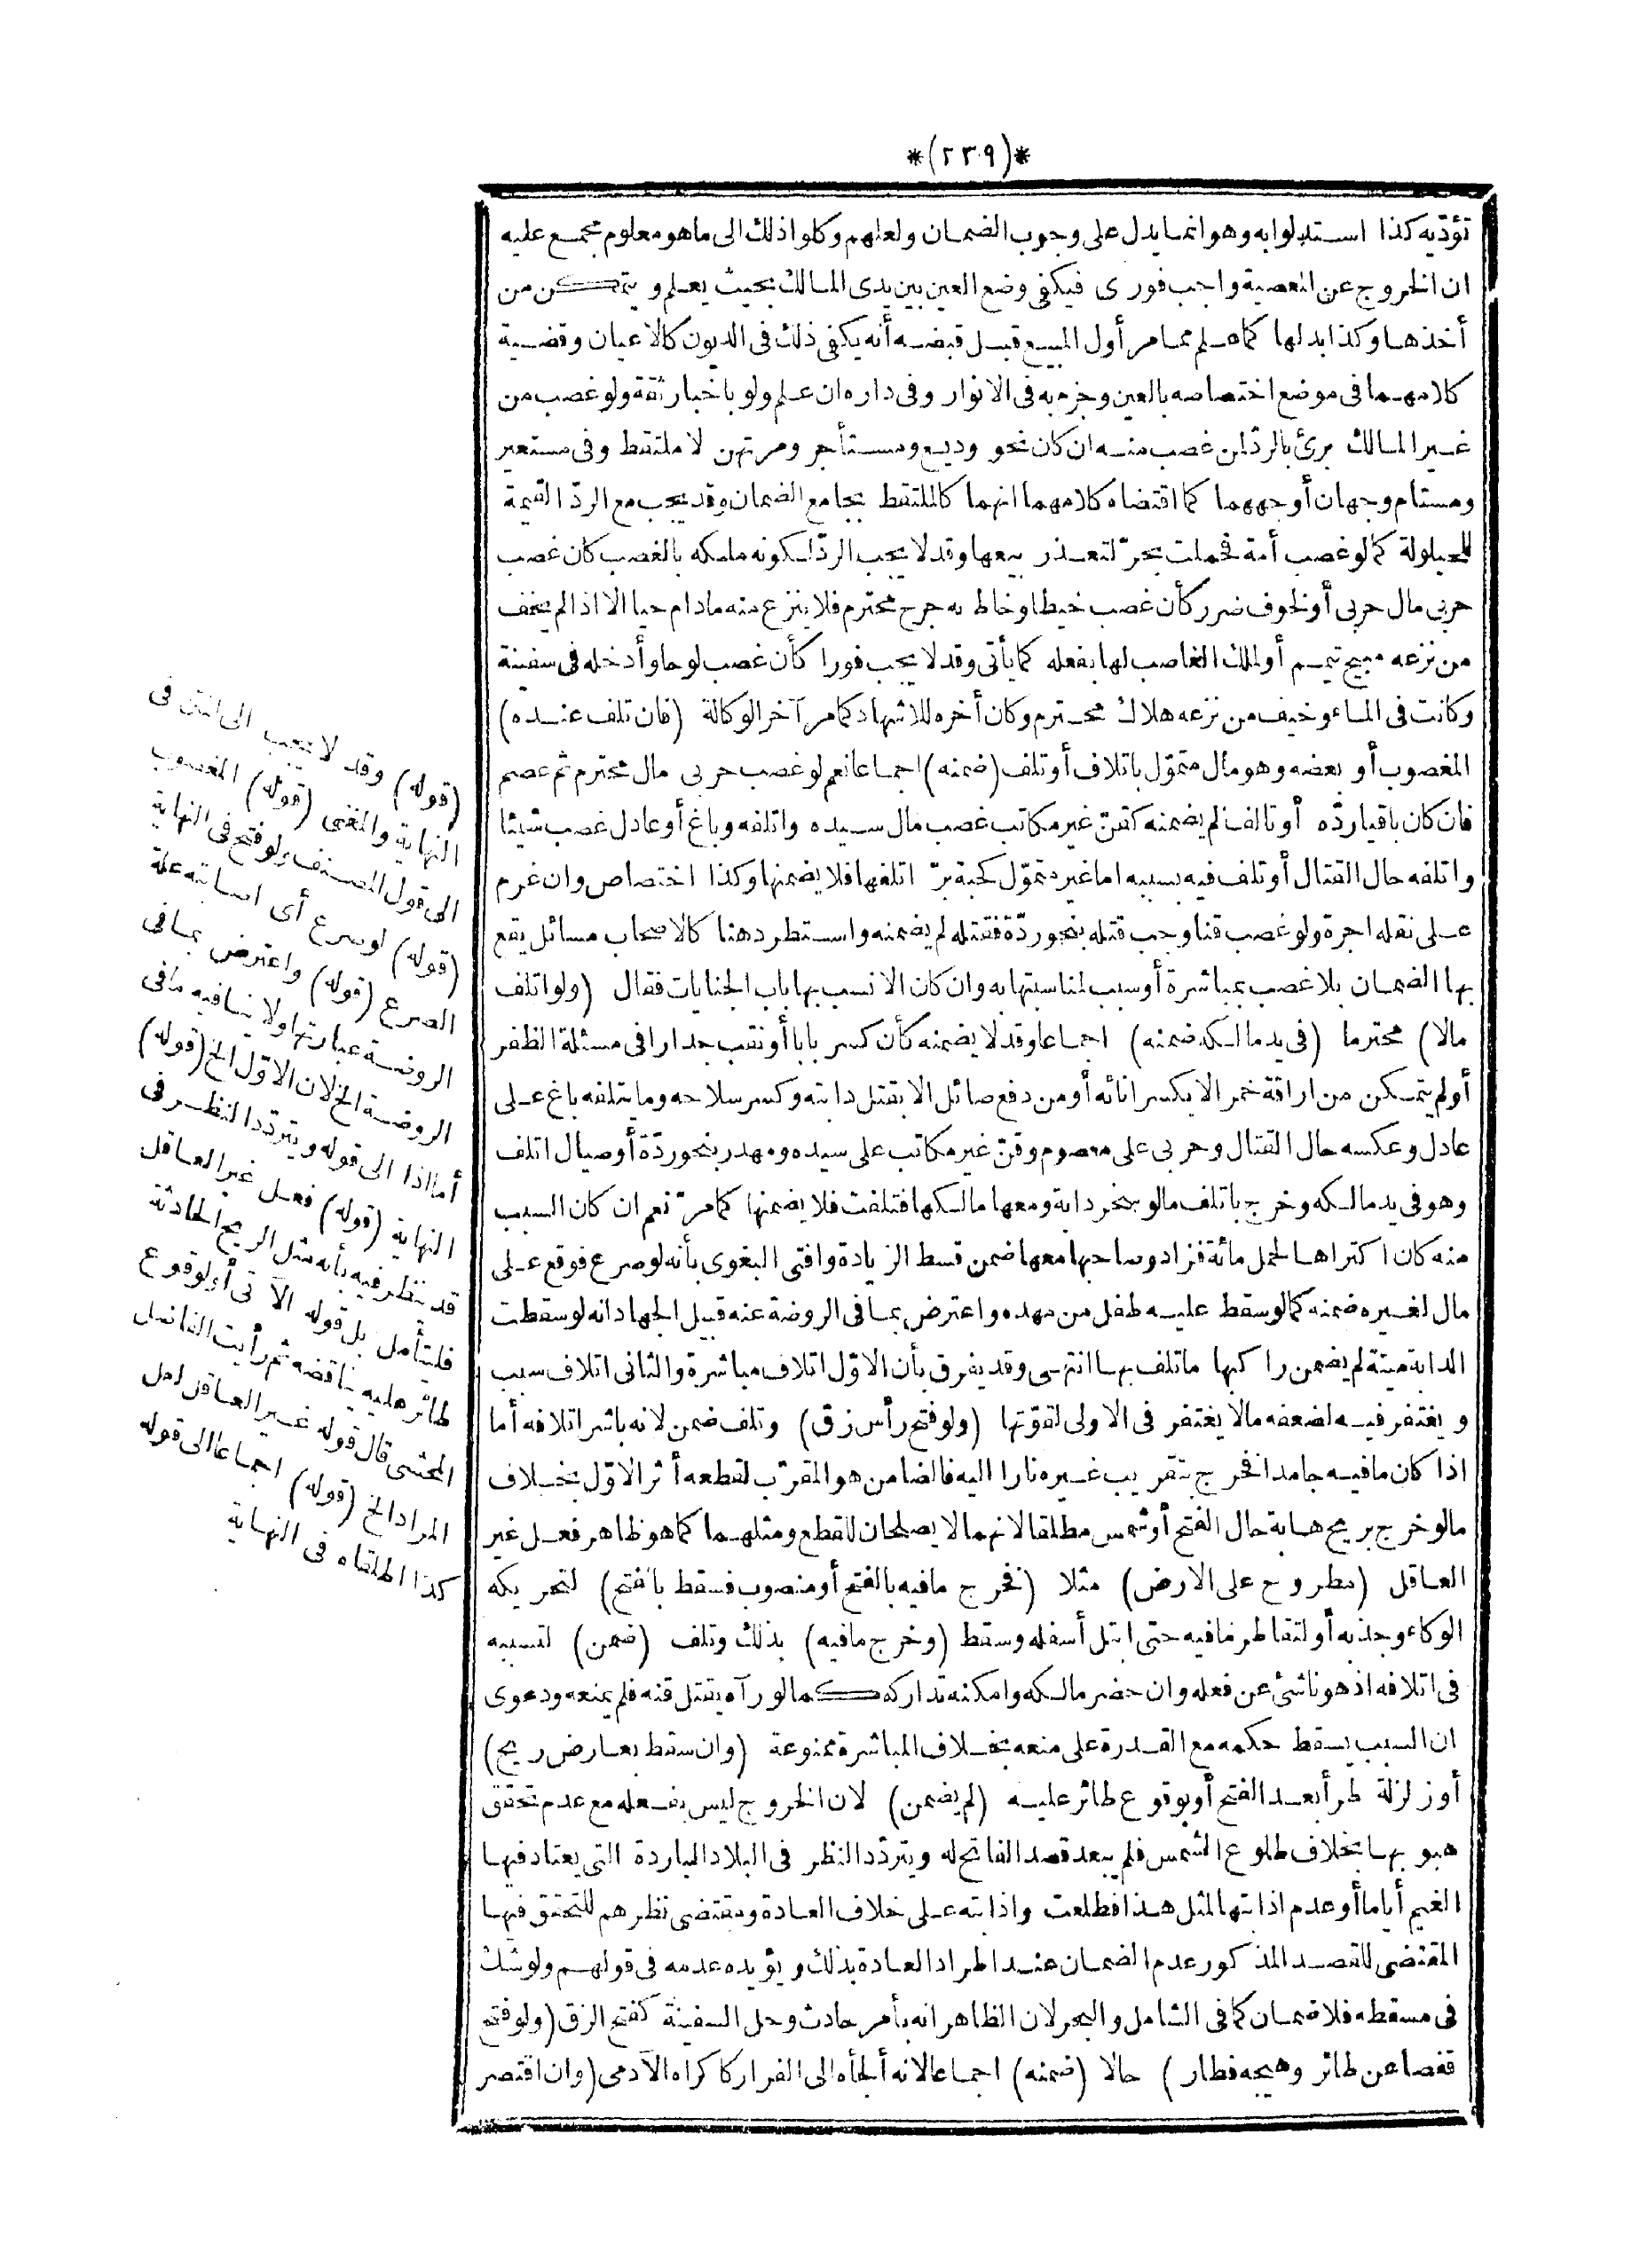 *(٢٣٩)*
تؤدّيه كذا استدلوا به وهو انما يدل على وجوب الضمان ولعلهم وكلوا ذلك الى ما هو معلوم مجمع عليه
ان الخروج عن المعصية واجب فورى فيكفى وضع العين بين يدى المالك بحيث يعلم ويتمكن من
أخذها وكذا بدلها كما علم مما مر أول المبيع قبل قبضه أنه يكفى ذلك فى الديون كالاعيان وقضية
كلامهما فى موضع اختصاصه بالعين وجزم به فى الانوار وفى داره ان علم ولو باخبار ثقة ولو غصب من
غير المالك برئ بالردّ لمن غصب منه ان كان نحو وديع ومستأجر ومرتهن لا ملتقط وفى مستعير
ومستام وجهان أوجههما كما اقتضاه كلامهما انهما كالملتقط بجامع الضمان وقد يجب مع الردّ القيمة
للحيلولة كما لو غصب أمة فحملت بحرّ لتعذر بيعها وقد لا يجب الردّ لكونه ملكه بالغصب كان غصب
حربى مال حربى أو لخوف ضرر كأن غصب خيطا وخاط به جرح محترم فلا ينزع منه مادام حيا الا اذا لم يخف
من نزعه مبيح تيمم أو لملك الغاصب لها بفعله كما يأتى وقد لا يجب فورا كأن غصب لوحا وأدخله فى سفينة
وكانت فى الماء وخيف من نزعه هلاك محترم وكان أخره للاشهاد كما مر آخر الوكالة (فان تلف عنده)
المغصوب أو بعضه وهو مال متموّل باتلاف أو تلف (ضمنه) اجماعا نعم لو غصب حربى مال محترم ثم عصم
فان كان باقيا ردّه أو تالف لم يضمنه كقنّ غير مكاتب غصب مال سيده واتلفه وباغ أو عادل غصب شيئا
واتلفه حال القتال أو تلف فيه بسببه اما غير متموّل كحبة برّ اتلفها فلا يضمنها وكذا اختصاص وان غرم
على نقله اجرة ولو غصب قنا وجب قتله بنحو ردّة فقتله لم يضمنه واستطرد هنا كالاصحاب مسائل يقع
بها الضمان بلا غصب بمباشرة أو سبب لمناسبتها به وان كان الانسب بها باب الجنايات فقال (ولو اتلف
مالا) محترما (فى يد مالكه ضمنه) اجماعا وقد لا يضمنه كأن كسر بابا أو نقب جدارا فى مسئلة الظفر
أو لم يتمكن من اراقة خمر الا بكسر انائه أو من دفع صائل الا بقتل دابته وكسر سلاحه وما يتلفه باغ على
عادل وعكسه حال القتال وحربى على معصوم وقنّ غير مكاتب على سيده ومهدر بنحو ردّة أو صيال اتلف
وهو فى يد مالكه وخرج باتلف ما لو سخر دابة ومعها مالكها فتلفت فلا يضمنها كما مرّ نعم ان كان السبب
منه كان اكتراها لحمل مائة فزاد وصاحبها معها ضمن قسط الزيادة وافتى البغوى بأنه لو صرع فوقع على
مال لغيره ضمنه كما لو سقط عليه طفل من مهده واعترض بما فى الروضة عنه قبيل الجهاد انه لو سقطت
الدابة ميتة لم يضمن راكبها ما تلف بها انتهى وقد يفرق بأن الاوّل اتلاف مباشرة والثانى اتلاف سبب
ويغتفر فيه لضعفه ما لا يغتفر فى الاولى لقوّتها (ولو فتح رأس زق) وتلف ضمن لانه باشر اتلافه أما
اذا كان ما فيه جامدا فخرج بتقريب غيره نارا اليه فالضامن هو المقرّب لقطعه أثر الاوّل بخلاف
ما لو خرج بريح هابة حال الفتح أو شمس مطلقا لانهما لا يصلحان للقطع ومثلهما كما هو ظاهر فعل غير
العاقل (مطروح على الارض) مثلا (فخرج ما فيه بالفتح أو منصوب فسقط بالفتح) لتحريكه
الوكاء وجذبه أو لتقاطر ما فيه حتى ابتل أسفله وسقط (وخرج ما فيه) بذلك وتلف (ضمن) لتسببه
فى اتلافه اذ هو ناشئ عن فعله وان حضر مالكه وامكنه تداركه كما لو رآه يقتل قنه فلم يمنعه ودعوى
ان السبب يسقط حكمه مع القدرة على منعه بخلاف المباشرة ممنوعة (وان سقط بعارض ريح)
أو زلزلة طرأ بعد الفتح أو بوقوع طائر عليه (لم يضمن) لان الخروج ليس بفعله مع عدم تحقق
هبوبها بخلاف طلوع الشمس فلم يبعد قصد الفاتح له ويتردّد النظر فى البلاد الباردة التى يعتاد فيها
الغيم أياما أو عدم اذابتها لمثل هذا فطلعت واذابته على خلاف العادة ومقتضى نظرهم للتحقق فيها
المقتضى للقصد المذكور عدم الضمان عند اطراد العادة بذلك ويؤيده عدمه فى قولهم ولو شك
فى مسقطه فلا ضمان كما فى الشامل والبحر لان الظاهر انه بأمر حادث وحل السفينة كفتح الزق (ولو فتح
قفصا عن طائر وهيجه فطار) حالا (ضمنه) اجماعا لانه ألجأه الى الفرار كاكراه الآدمى (وان اقتصر
(قوله) وقد لا يجب الى المتن فى
النهاية والمغنى (قوله) المغصوب
الى قول المصنف ولو فتح فى النهاية
(قوله) لو صرع أى اصابته علة
الصرع (قوله) واعترض بما فى
الروضة عبارتها ولا ينافيه ما فى
الروضة الخ لان الاوّل الخ (قوله)
أما اذا الى قوله ويتردّد النظر فى
النهاية (قوله) فعل غير العاقل
قد ينظر فيه بأنه مثل الريح الحادثة
فليتأمل بل قوله الآتى أو بوقوع
طائر عليه يناقضه ثم رأيت الفاضل
المحشى قال قوله غير العاقل لعل
المراد الخ (قوله) اجماعا الى قوله
كذا اطلقاه فى النهاية